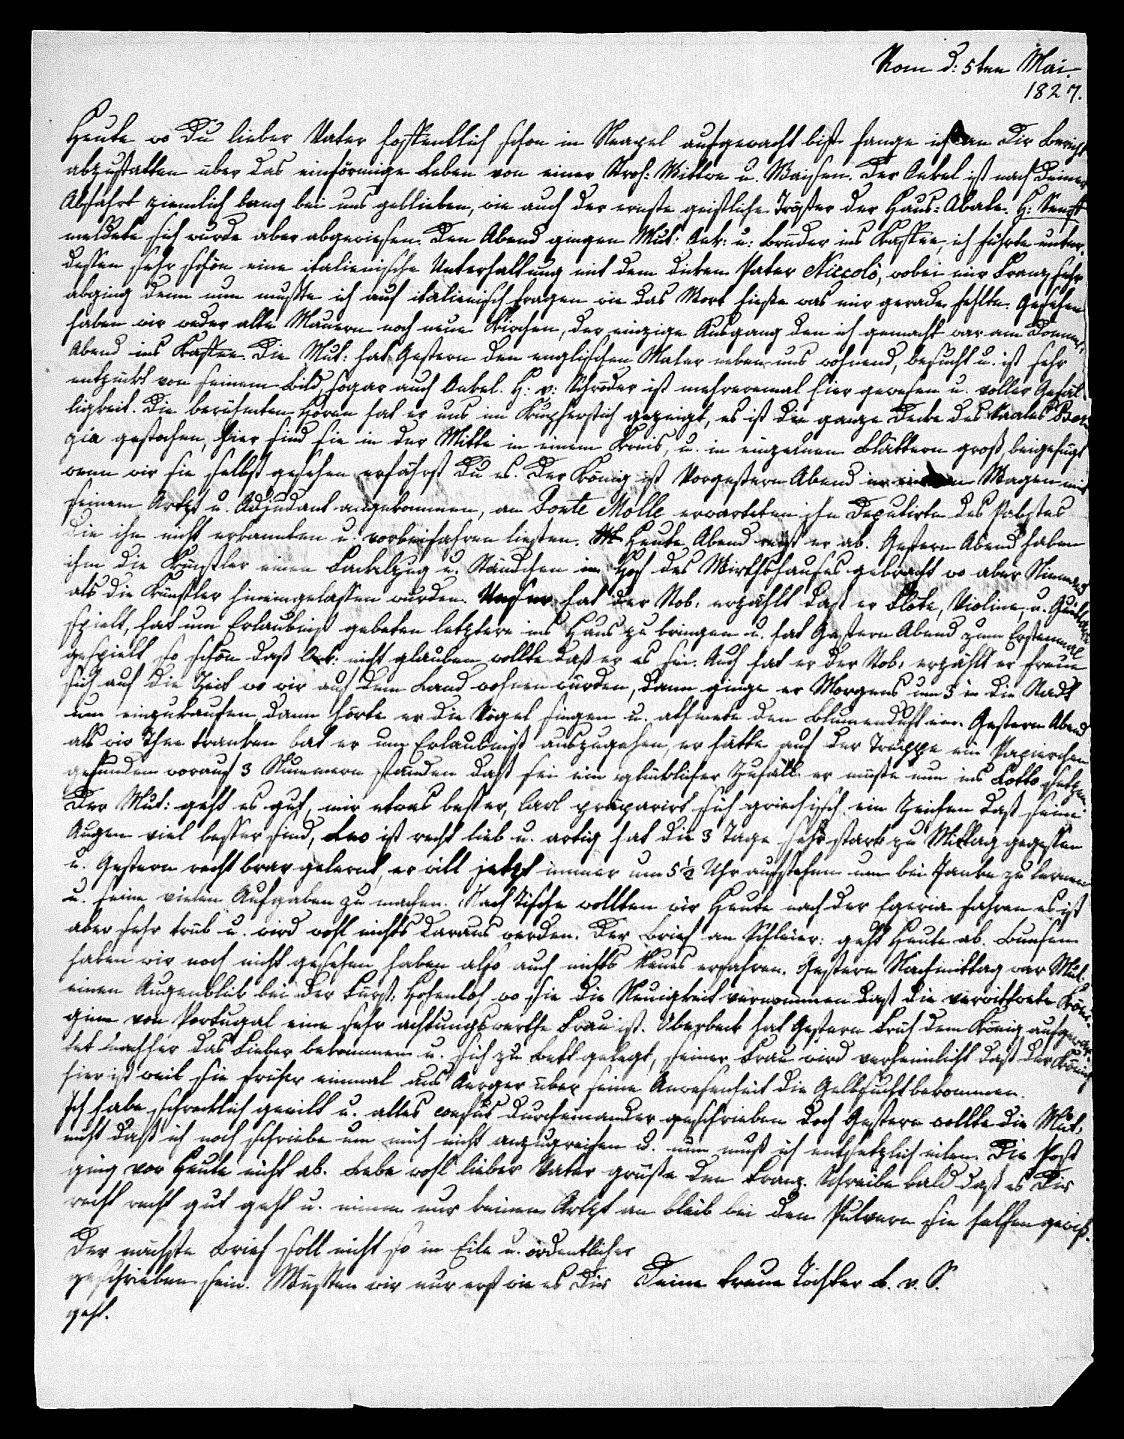 Rom d: 5ten Mai.
1827.
Heute wo Du lieber Vater hoffentlich schon in Neapel aufgewacht bist fange ich an Dir Bericht
abzustatten über das einförmige Leben von einer Stroh: Wittwe u. Waisen. Der Onkel ist nach Deiner
Abfahrt ziemlich lang bei uns geblieben, wie auch der ernste geistliche Tröster der Haus-Abate. H:
meldete sich wurde aber abgewiesen. Den Abend gingen Mut: Onk: u: Brüder ins Kaffee, ich führte unter,
dessen sehr schön eine italienische Unterhaltung mit dem dicken Pater Niccolò, wobei mir Franz sehr
abging denn nun mußte ich auf italienisch fragen wie das Wort hieße was mir gerade fehlte. Gesehen
haben wir weder alte Mauern noch neue Kirchen, der einzige Ausgang den ich gemacht war am Donners,
Abend ins Kaffee. Die Mut: hat Gestern den englischen Maler neben uns wohnend, besucht u. ist sehr
entzückt von seinem Bild, sogar auch Onkel. H. v: Schröder ist mehreremal hier gewesen u. voller Gefäl,
ligkeit. Die berühmten Horen hat er uns im Kupferstich gezeigt, es ist die ganze Decke des Bor,
gia gestochen, hier sind sie in der Mitte in einem Kreis, u. in einzelnen Blättern groß beigefügt
wenn wir sie selbst gesehen erfährst Du es. Der König ist Vorgestern Abend Wagen mit
seinem Artzt u. Adjudant angekommen, an Ponte Molle erwarteten ihn Deputirte des Pabstes
die ihn nicht erkannten u. vorbeifahren ließen. Heute Abend reist er ab. Gestern Abend haben
ihm die Künstler einen Fackelzug u. Ständchen im Hof des Wirthshauses gebracht wo aber Niemand
als die Künstler hineingelassen wurden. Unser hat der Nob. erzählt daß er Flöte, Violine, u. Guitarre
spielt, hat um Erlaubniß gebeten letztere ins Haus zu bringen u. hat Gestern Abend zum Erstenmal
gespielt so schön daß nicht glauben wollte daß er es sei. Auch hat er der Nob. erzählt er freue
sich auf die Zeit wo wir auf dem Land wohnen würden, dann ginge er Morgens um 3 in die Stadt
um einzukaufen dann hörte er die Vögel singen u. athmete den Blumenduft ein. Gestern Abend
als wir Thee tranken bat er um Erlaubniß auszugehen, er hätte auf der Treppe ein Papierchen
gefunden worauf 3 Nummern standen daß sei ein glücklicher Zufall er müße nun ins Lotto setzen.
Der Mut: geht es gut, mir etwas besser, Carl präparirt sich griechisch ein Zeichen daß seine
Augen viel besser sind, Leo ist recht lieb u. artig hat die 3 Tage sehr stark zu Mittag gegessen
u. Gestern recht brav gelernt, er will jetzt immer um 5½ Uhr aufstehen um bei zu lernen
u. seine vielen Aufgaben zu machen. Nach Tische wollten wir Heute nach der Egeria fahren es ist
aber sehr trüb u. wird wohl nichts daraus werden. Der Brief an Schleier: geht Heute ab. Bunsen
haben wir noch nicht gesehen haben also auch nichts Neues erfahren. Gestern Nachmittag war Mut.
einen Augenblick bei der Fürst. Hohenloh wo sie die Neuigkeit vernommen daß die verwittwete Köni,
gin von Portugal eine sehr achtungswerthe Frau ist. Overbeck hat Gestern Früh dem König aufgewar,
tet nachher das Fieber bekommen u. sich zu Bett gelegt, seiner Frau wird verheimlicht daß der König
hier ist weil sie früher einmal aus Aerger über seine Anwesenheit die Gelbsucht bekommen.
Ich habe schrecklich geeilt u. alles confus durcheinander geschrieben doch Gestern wollte die Mut,
nicht daß ich noch schriebe um mich nicht anzugreifen u. nun muß ich entsetzlich eilen. Die Post
ging vor Heute nicht ab. Lebe wohl lieber Vater grüße den Franz. Schreibe bald daß es Dir
recht recht gut geht u. nimm nur keinen Artzt an bleib bei den Pulvern sie helfen gewiß.
Der nächste Brief soll nicht so in Eile u. ordentlicher
geschrieben sein. Wüßten wir nur erst wie es Dir Deine treue Tochter L. v. S.
geht.